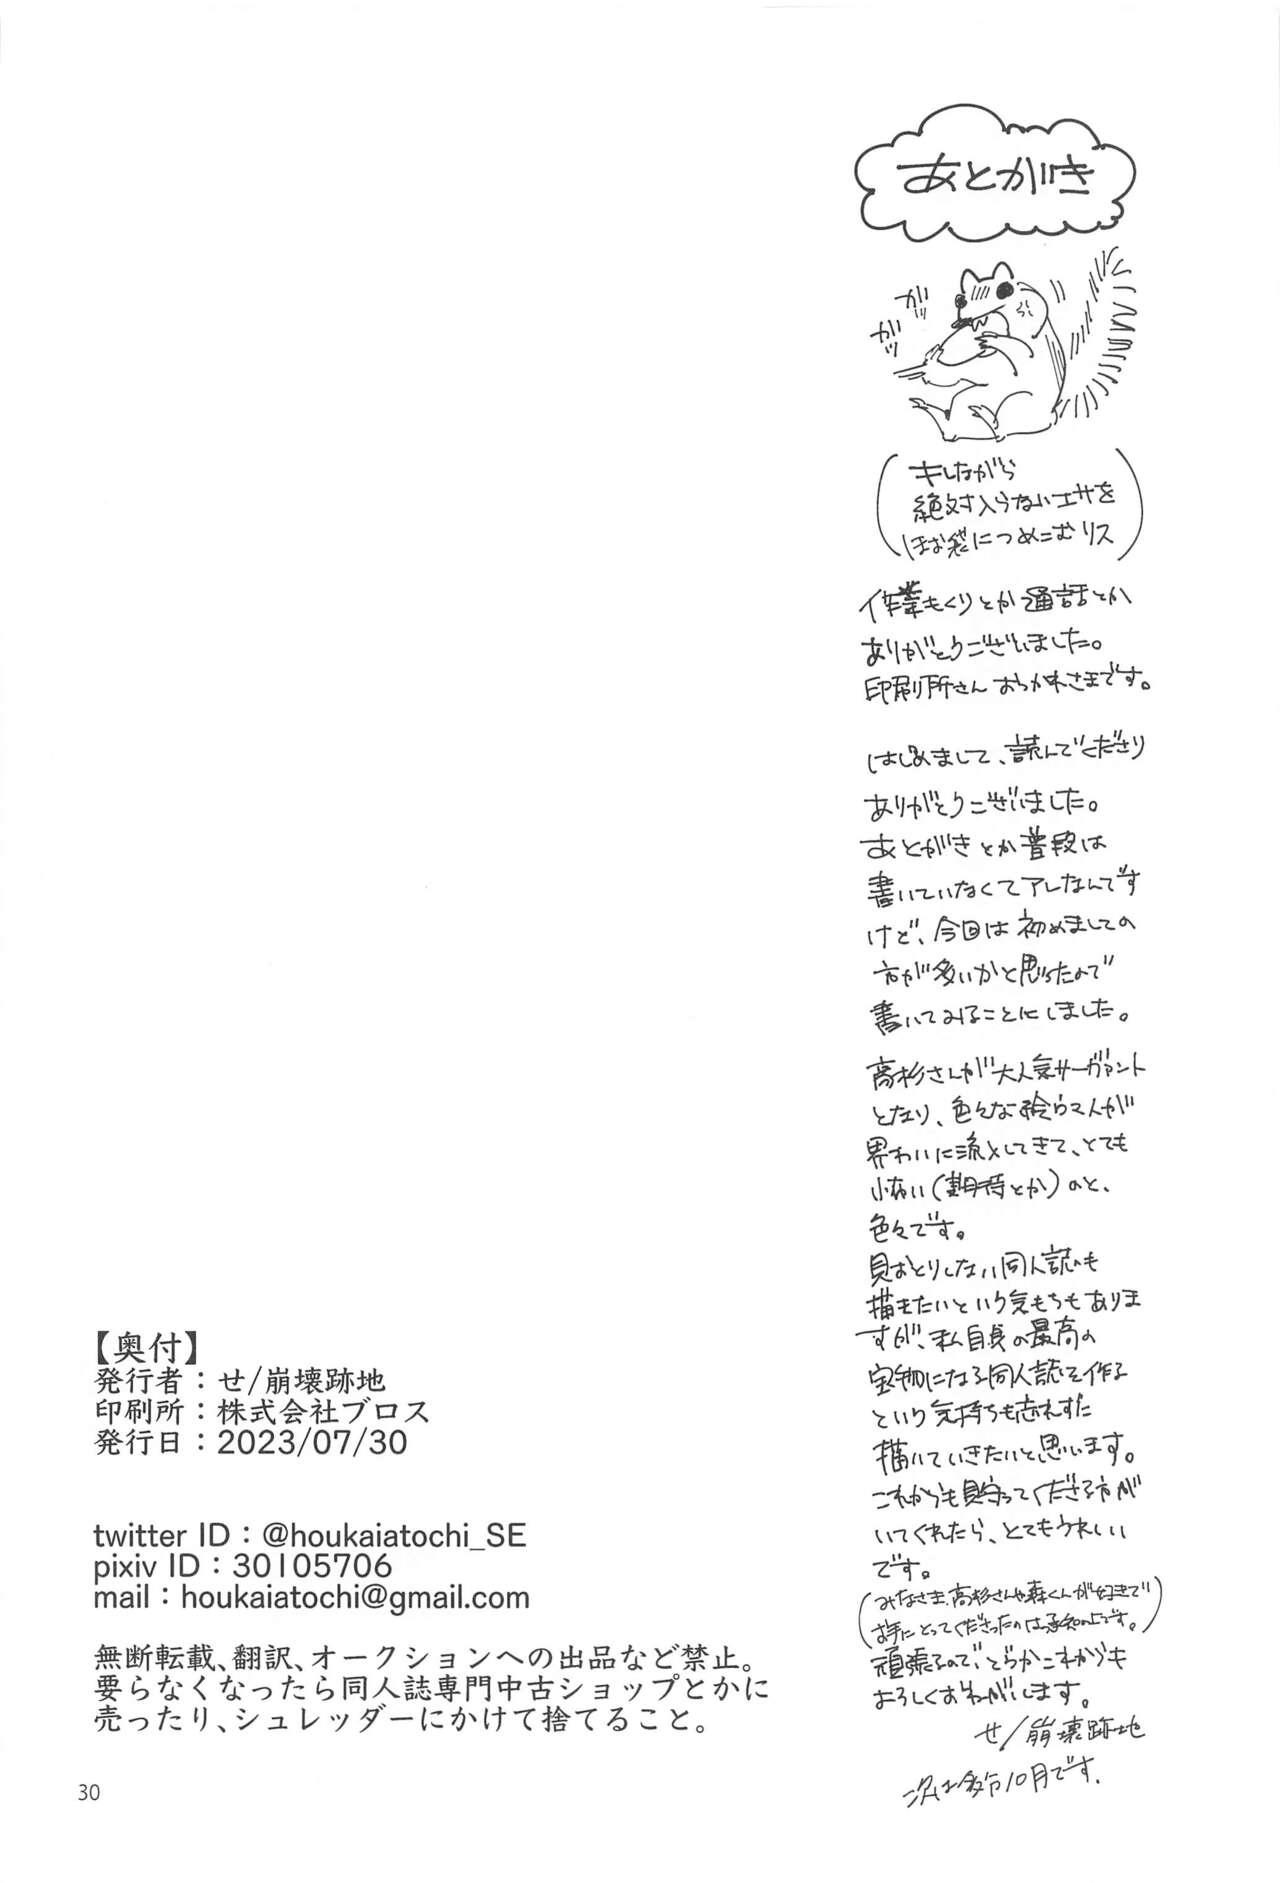 あとがき
ガッ
ガッ
キレながら
絶対入らないエサを
ほお袋につめこむリス
作業もくりとか通話とか
ありがとうございました。
印刷所さんおつかれさまです。
はじめまして、読んでくださり
ありがとうございました。
あとがきとか普段は
書いていなくてアレなんです
けど、今回は初めましての
方が多いかと思ったので
書いてみることにしました。
高杉さんが大人気サーヴァント
となり、色々な絵うマ人が
界わいに流入してきて、とても
怖い(期待とか)のと、
色々です。
見おとりしない同人誌も
描きたいという気もちもありま
すが、私自身の最高の
宝物になる同人誌を作る
という気持ちも忘れずに
描いていきたいと思います。
これからも見守ってくださる方が
いてくれたら、とてもうれしい
です。
(みなさま、高杉さんや森くんが好きで
お手にとってくださったのは承知の上です。)
頑張るので、どうかこれからも
よろしくおねがいします。
せ/崩壊跡地
次は多分10月です。
【奥付】
発行者：せ/崩壊跡地
印刷所：株式会社ブロス
発行日：2023/07/30
twitter ID：@houkaiatochi_SE
pixiv ID：30105706
mail：houkaiatochi@gmail.com
無断転載、翻訳、オークションへの出品など禁止。
要らなくなったら同人誌専門中古ショップとかに
売ったり、シュレッダーにかけて捨てること。
30